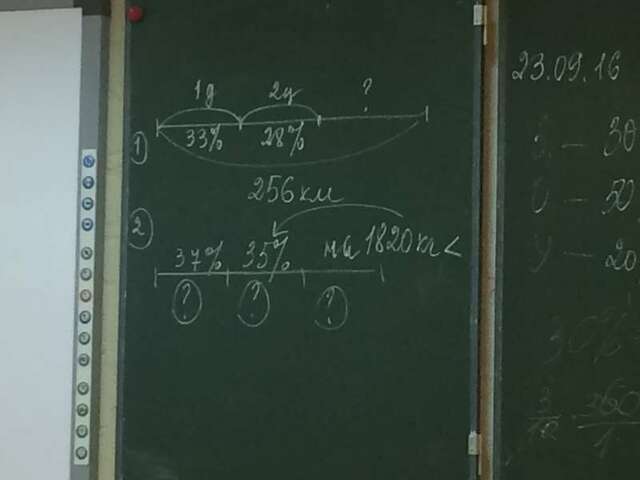 1д 2д ?
① 33% 28%
256 км
② 37% 35% на 1820 кг <
? ? ?
23.09.16
— 30
— 50
У — 20
30%
3/12 · 360/1